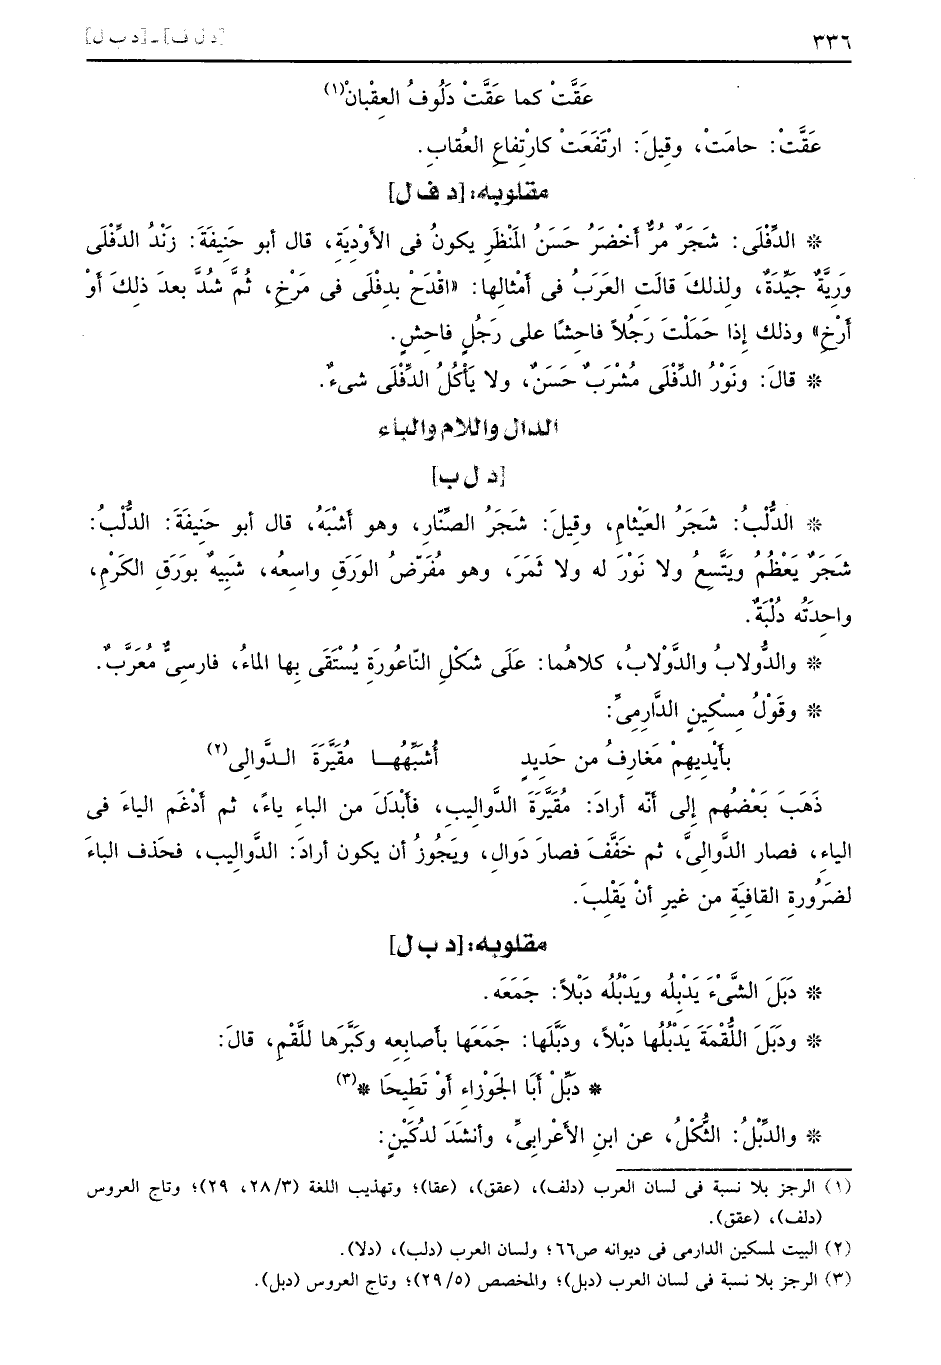 ٣٣٦ [د ل ف] ـ [د ب ل]
عَقَّتْ كما عَقَّتْ دَلُوفُ العِقْبانْ(١)
عَقَّتْ: حامَتْ، وقِيلَ: ارْتَفَعَتْ كارْتِفاعِ العُقاب.
مقلوبه: [د ف ل]
* الدِّفْلَى: شَجَرٌ مُرٌّ أخْضَرُ حَسَنُ المَنْظَرِ يكونُ فى الأوْدِيَة، قال أبو حَنِيفَةَ: زَنْدُ الدِّفْلَى
وَرِيَّةٌ جَيِّدَةٌ، ولذلكَ قالَتِ العَرَبُ فى أمْثالها: «اقْدَحْ بدِفْلَى فى مَرْخٍ، ثُمَّ شُدَّ بعدَ ذلكَ أوْ
أرْخِ» وذلك إذا حَمَلْتَ رَجُلاً فاحشًا على رَجُلٍ فاحِشٍ.
* قالَ: ونَوْرُ الدِّفْلَى مُشْرَبٌ حَسَنٌ، ولا يَأْكُلُ الدِّفْلَى شىءٌ.
الدال واللام والباء
[د ل ب]
* الدُّلْبُ: شَجَرُ العَيْثامِ، وقِيلَ: شَجَرُ الصِّنَّارِ، وهو أشْبَهُ، قال أبو حَنِيفَةَ: الدُّلْبُ:
شَجَرٌ يَعْظُمُ ويَتَّسِعُ ولا نَوْرَ له ولا ثَمَرَ، وهو مُفَرَّضُ الورَقِ واسِعُه، شَبِيهٌ بوَرَقِ الكَرْمِ،
واحِدَتُه دُلْبَةٌ.
* والدُّولابُ والدَّوْلابُ، كلاهُما: عَلَى شَكْلِ النَّاعُورَةِ يُسْتَقَى بِها الماءُ، فارسىٌّ مُعَرَّبٌ.
* وقَوْلُ مِسْكِينٍ الدَّارِمِىِّ:
بأيْدِيهِمْ مَغارِفُ من حَدِيدٍ أُشَبِّهُهـا مُقَيَّرَةَ الـدَّوالِى(٢)
ذَهَبَ بَعْضُهم إلى أنَّه أرادَ: مُقَيَّرَةَ الدَّوالِيبِ، فأبْدَلَ من الباءِ ياءً، ثم أدْغَم الياءَ فى
الياءِ، فصار الدَّوالِىَّ، ثم خَفَّفَ فصارَ دَوالِ، ويَجُوزُ أن يكون أرادَ: الدَّوالِيب، فحَذف الباءَ
لضَرُورةِ القافِيَةِ من غيرِ أنْ يَقْلِبَ.
مقلوبه: [د ب ل]
* دَبَلَ الشَّىْءَ يَدْبِلُه ويَدْبُلُه دَبْلاً: جَمَعَه.
* ودَبَلَ اللُّقْمَةَ يَدْبُلُها دَبْلاً، ودَبَّلَها: جَمَعَها بأصابِعِه وكَبَّرَها للَّقْمِ، قالَ:
* دَبِّلْ أبَا الجَوْزاءِ أوْ تَطِيحَا *(٣)
* والدِّبْلُ: الثُّكْلُ، عن ابنِ الأعْرابىِّ، وأنشَدَ لدُكَيْنٍ:
(١) الرجز بلا نسبة فى لسان العرب (دلف)، (عقق)، (عقا)؛ وتهذيب اللغة (٢٨/٣، ٢٩)؛ وتاج العروس
(دلف)، (عقق).
(٢) البيت لمسكين الدارمى فى ديوانه ص٦٦؛ ولسان العرب (دلب)، (دلا).
(٣) الرجز بلا نسبة فى لسان العرب (دبل)؛ والمخصص (٢٩/٥)؛ وتاج العروس (دبل).